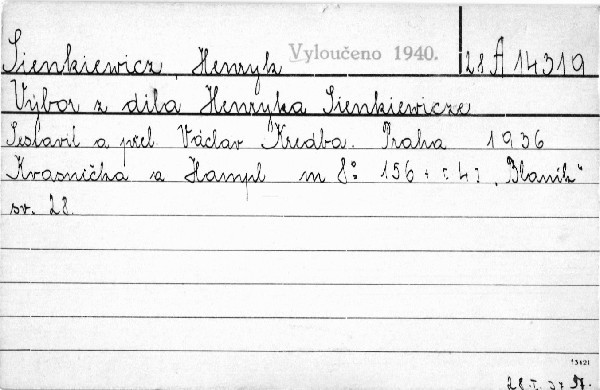 Sienkiewicz, Henryk Vyloučeno 1940. 28 A 14319
Výbor z díla Henryka Sienkiewicze
Sestavil a přel. Václav Kredba. Praha 1936
Krasnička a Hampl m 8° 156 + [4] „Blaník“
sv. 28.
13421
28.I.37